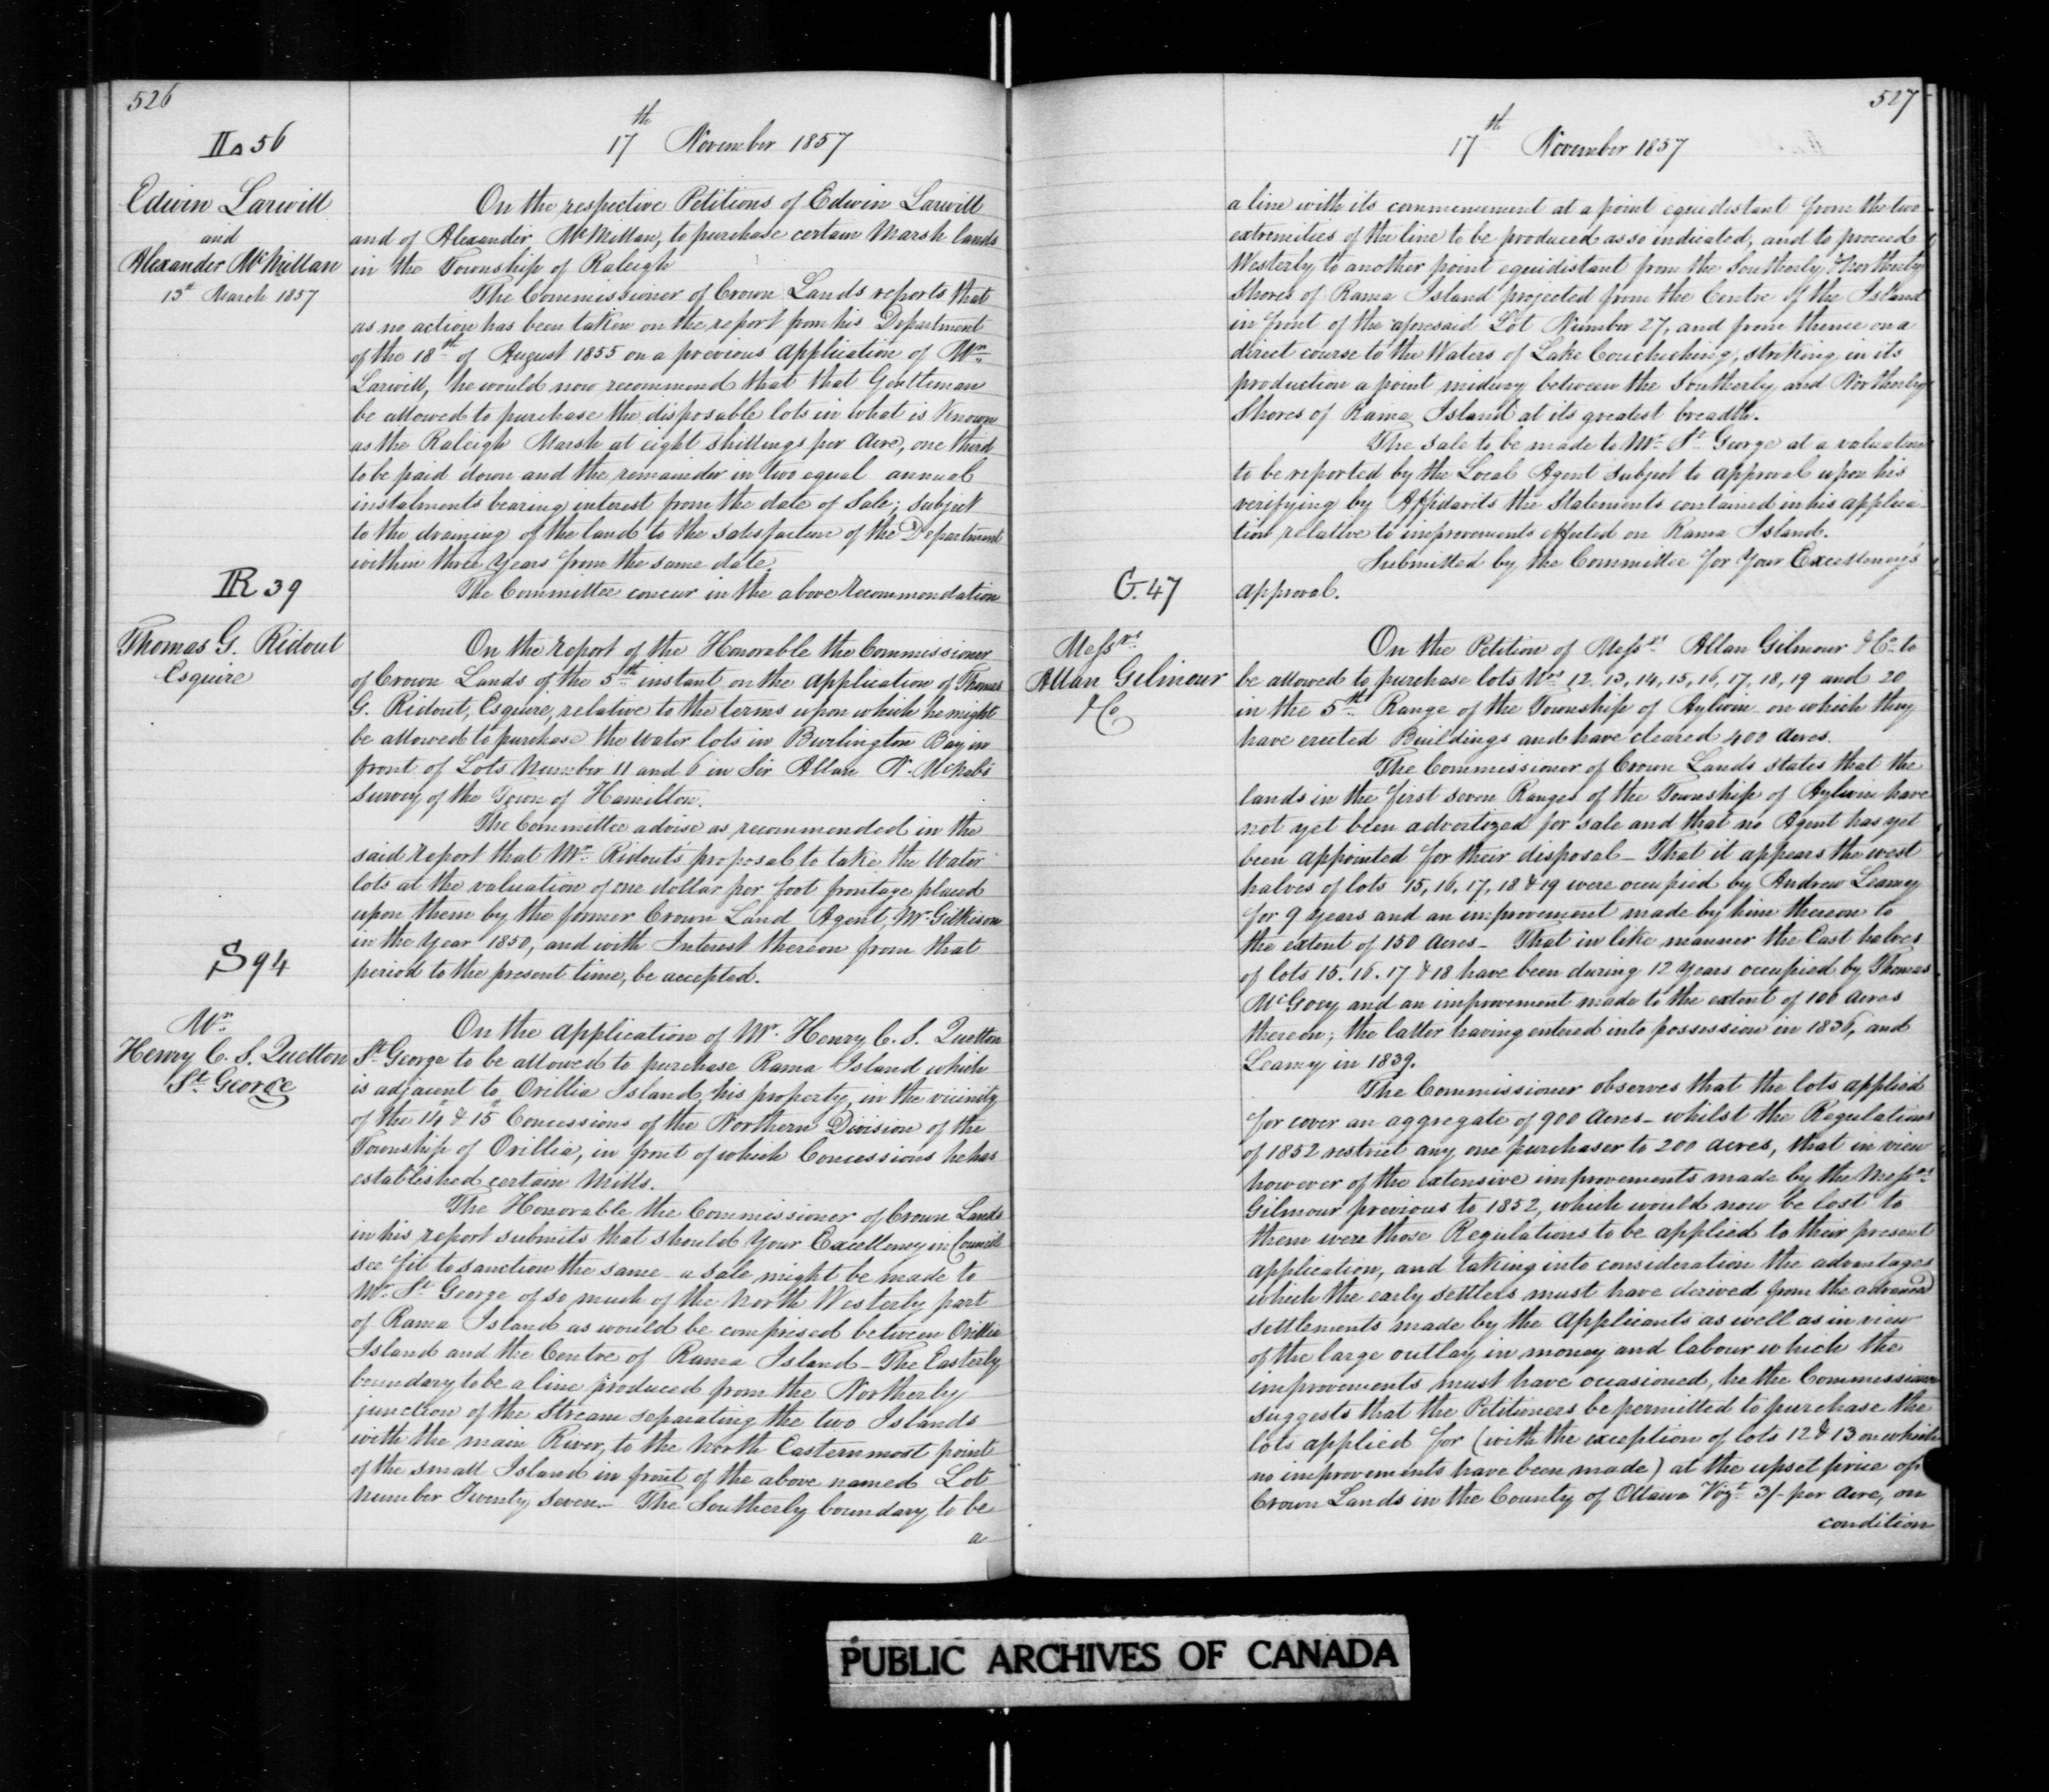 526
17th November 1857
56
Edwin Larwill
and
Alexander McMillan
13th March 1857
On the respective Petitions of Edwin Larwill
and of Alexander McMillan, to purchase certain Marsh lands
in the Township of Raleigh
The Commissioner of Crown Lands reports that
as no action has been taken on the report from his Department
of the 18th of August 1855 on a previous application of Mr.
Larwill, he would now recommend that that Gentleman
be allowed to purchase the disposable lots in what is Known
as the Raleigh Marsh at eight shillings per Acre, one third
to be paid down and the remainder in two equal annual
instalments bearing interest from the date of Sale; subject
to the draining of the land to the satisfaction of the Department
within three Years from the same date.
The Committee concur in the above recommendation
R 39
Thomas G. Ridout
Esquire
On the report of the Honorable the Commissioner
of Crown Lands of the 5th instant on the application of Thomas
G. Ridout, Esquire, relative to the terms upon which he might
be allowed to purchase the Water lots in Burlington Bay in
front of Lots Number 11 and 6 in Sir Allan N. McNab's
survey of the Town of Hamilton.
The Committee advise as recommended in the
said report that Mr. Ridout's proposal to take the Water
lots at the valuation of one dollar per foot frontage placed
upon them by the former Crown Land Agent, Mr. Gilkison
in the Year 1850, and with Interest thereon from that
period to the present time, be accepted.
S 94
Mr.
Henry C. S. Quetton
St. George
On the application of Mr. Henry C. S. Quetton
St. George to be allowed to purchase Rama Island which
is adjacent to Orillia Island, his property, in the vicinity
of the 14th & 15th Concessions of the Northern Division of the
Township of Orillia, in front of which Concessions he has
established certain Mills.
The Honorable the Commissioner of Crown Lands
in his report submits that should Your Excellency in Council
see fit to sanction the same a sale might be made to
Mr. St. George of so much of the North Westerly part
of Rama Island as would be comprised between Orillia
Island and the Centre of Rama Island – The Easterly
boundary to be a line produced from the Northerly
junction of the Stream separating the two Islands
with the main River, to the North Easternmost point
of the small Island in front of the above named Lot
number Twenty seven. – The Southerly boundary to be
a
527
17th November 1857
a line with its commencement at a point equidistant from the two
extremities of the line to be produced as so indicated, and to proceed
Westerly to another point equidistant from the Southerly & Northerly
Shores of Rama Island projected from the Centre of the Island
in front of the aforesaid Lot Number 27, and from thence on a
direct course to the Waters of Lake Couchiching, striking in its
production a point midway between the Southerly and Northerly
Shores of Rama Island at its greatest breadth.
The sale to be made to Mr. St. George at a valuation
to be reported by the Local Agent subject to approval upon his
verifying by Affidavits the Statements contained in his applica-
tion relative to improvements effected on Rama Island.
Submitted by the Committee for Your Excellency's
approval.
G. 47
Messrs.
Allan Gilmour
& Co
On the Petition of Messrs. Allan Gilmour & Co. to
be allowed to purchase lots Nos. 12. 13, 14, 15, 16, 17, 18, 19 and 20
in the 5th Range of the Township of Aylwin on which they
have erected Buildings and have cleared 400 acres.
The Commissioner of Crown Lands states that the
lands in the first seven Ranges of the Township of Aylwin have
not yet been advertized for sale and that no Agent has yet
been appointed for their disposal – That it appears the west
halves of lots 15, 16, 17, 18 & 19 were occupied by Andrew Leamy
for 9 years and an improvement made by him thereon to
the extent of 150 acres – That in like manner the East halves
of lots 15. 16. 17 & 18 have been during 12 years occupied by Thomas
McGoey and an improvement made to the extent of 100 acres
thereon; the latter having entered into possession in 1836, and
Leamy in 1839.
The Commissioner observes that the lots applied
for cover an aggregate of 900 acres – whilst the Regulations
of 1852 restrict any one purchaser to 200 acres, that in view
however of the extensive improvements made by the Messrs.
Gilmour previous to 1852, which would now be lost to
them were those Regulations to be applied to their present
application, and taking into consideration the advantages
which the early settlers must have derived from the advanced
settlements made by the applicants as well as in view
of the large outlay in money and labour which the
improvements must have occasioned, he the Commissioner
suggests that the Petitioners be permitted to purchase the
lots applied for (with the exception of lots 12 & 13 on which
no improvements have been made) at the upset price of
Crown Lands in the County of Ottawa Vizt. 3/- per acre, on
condition
PUBLIC ARCHIVES OF CANADA